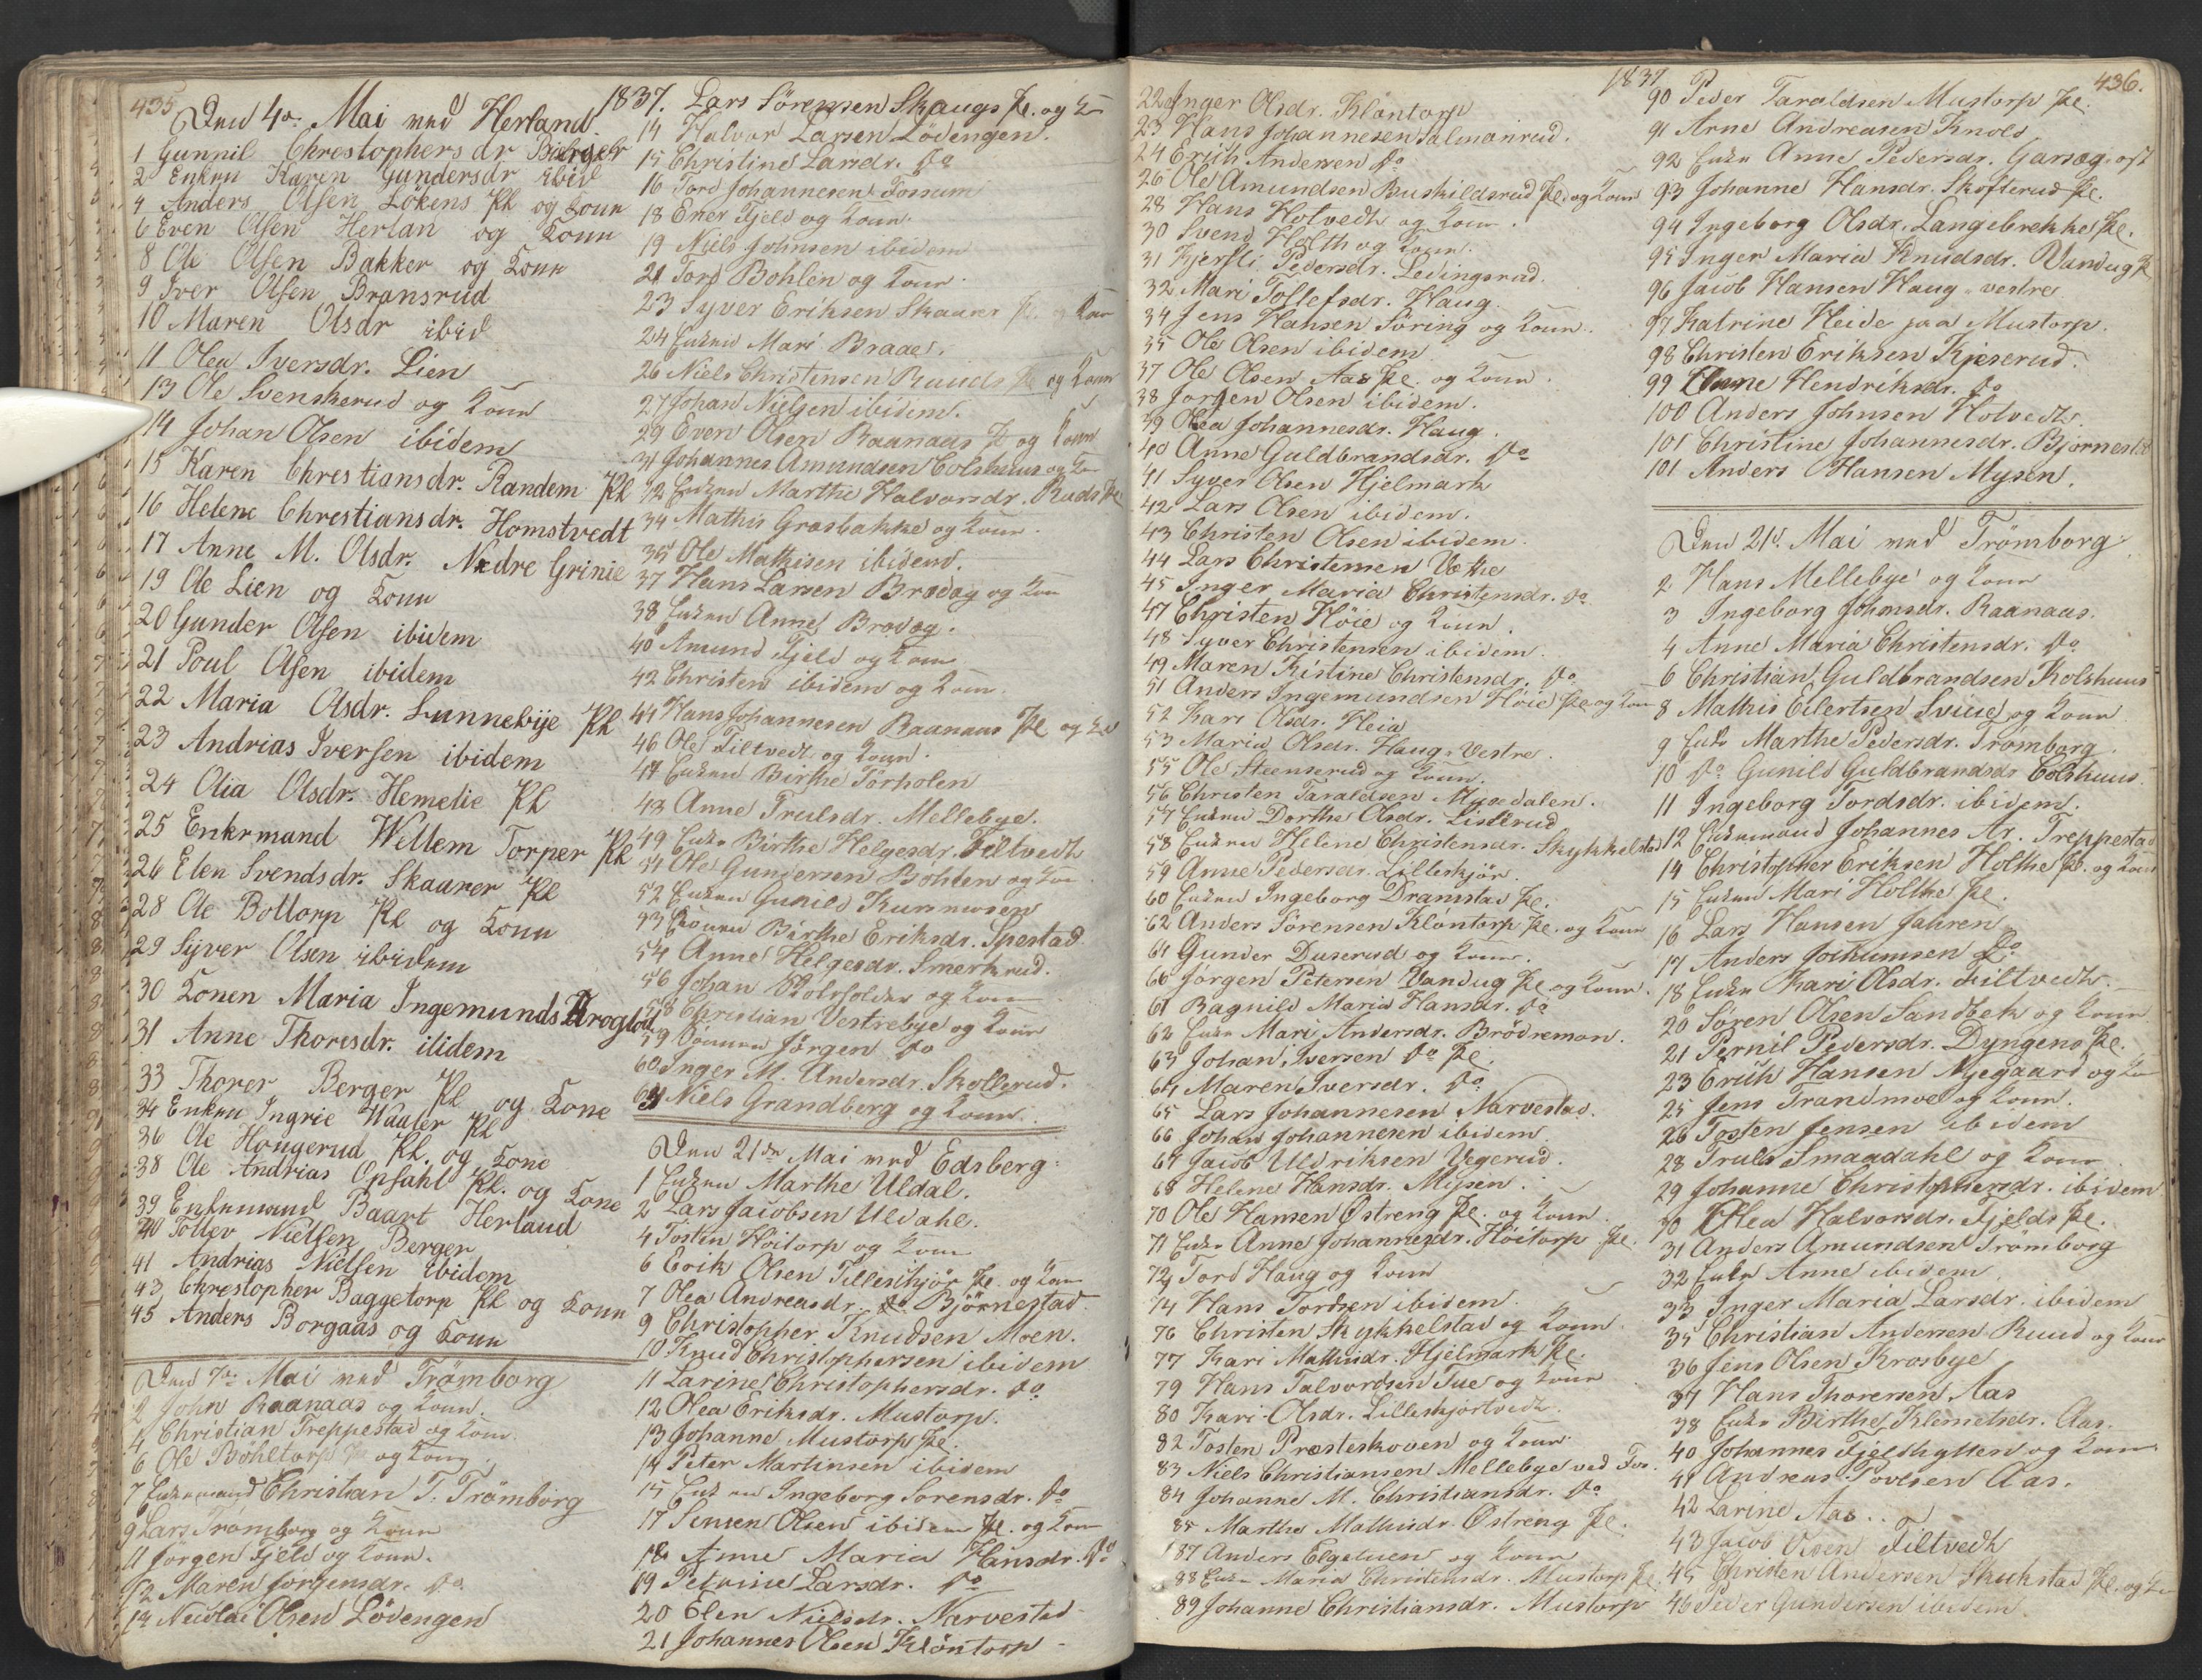 435
1837.
Den 4de Mai ved Herland.
1 Gunnil Chrestophersdr Bærger
2 Enken Karen Gundersdr ibid
4 Anders Olsen Lökens Pl og Kone
6 Even Olsen Herlan og Kone
8 Ole Olsen Bakker og Kone
9 Iver Olsen Bransrud
10 Maren Olsdr ibid
11 Olea Iversdr. Lien
13 Ole Svenskerud og Kone
14 Johan Olsen ibidem
15 Karen Chrestiansdr. Randem Pl
16 Helene Chrestiansdr. Homstvedt
17 Anne M. Olsdr. Nedre Grinie
19 Ole Lien og Kone
20 Gunder Olsen ibidem
21 Poul Olsen ibidem
22 Maria Olsdr. Sunnebye Pl
23 Andrias Iversen ibidem
24 Olia Olsdr. Hemelie Pl
25 Enkemand Wellem Torper Pl
26 Elen Svendsdr. Skaarer Pl
28 Ole Boltorp Pl og Kone
29 Syver Olsen ibidem
30 Konen Maria Ingemunds Kroglod
31 Anne Thoresdr. ibidem
33 Thorer Berger Pl og Kone
34 Enken Ingrie Waaler Pl
36 Ole Hougerud Pl. og Kone
38 Ole Andrias Opsahl Pl. og Kone
39 Enkemand Baart Herland
40 Tollev Nielsen Berger
41 Andrias Nielsen ibidem
43 Chrestopher Baggetorp Pl og Kone
45 Anders Borgaas og Kone
Den 7de Mai ved Trömborg
2 John Raanaas og Kone.
4 Christian Treppestad og Kone.
6 Ole Böhltorp Pl og Kone
7 Enkemand Christian T. Trömborg
9 Lars Trömborg og Kone
11 Jörgen Fjeld og Kone.
12 Maren Jorgensdr. Do
13 Nicolai Olsen Lödengen
Lars Sörensen Skaugs Pl. og K
14 Halvor Larsen Lödengen.
15 Christine Larsdr. Do
16 Tord Johannesen Fossum
18 Ener Fjeld og Kone.
19 Niels Johnsen ibidem
21 Tord Bohlen og Kone.
23 Syver Eriksen Skaarer Pl. og Kone
24 Enken Mari Braae.
26 Niels Christensen Ruuds Pl og Kone
27 Johan Nielsen ibidem.
29 Even Olsen Raanaas Pl og Kone
31 Johannes Amundsen Colshuus og Kone
32 Enken Marthe Halvorsdr. Ruds Pl
34 Mathis Græsbakke og Kone.
35 Ole Mathisen ibidem.
37 Hans Larsen Brødag og Kone
38 Enken Anne Brødag.
40 Amund Fjeld og Kone
42 Christen ibidem og Kone.
44 Hans Johannesen Raanaas Pl og Kone
46 Ole Filtvedt og Kone.
47 Enken Birthe Törholen
48 Anne Trulsdr. Mellebye.
49 Enke Birthe Helgesdr. Filtvedt
51 Ole Gundersen Bohlen og Kone
52 Enken Gunild
53 Konen Birthe Eriksdr. Spestad.
54 Anne Helgesdr. Smerkrud.
56 Johan og Kone
58 Christian Vestrebye og Kone
59 Jörgen Do
60 Inger M. Andersdr. Skollerud.
62 Niels Grandberg og Kone.
Den 21de Mai ved Edsberg.
1 Enken Marthe Uldal.
2 Lars Jacobsen Uldahl.
4 Tosten Höitorp og Kone
6 Erik Olsen Tilleskjör Pl. og Kone
7 Olea Andreasdr. Björnestad.
9 Christopher Knudsen Moen.
10 Knud Christophersen ibidem
11 Larine Christophersdr. Do.
12 Olea Eriksdr. Mustorp.
13 Johanne Mustorp Pl.
14 Peter Martinsen ibidem
15 Enken Ingeborg Sorensdr. Do
17 Simen Olsen ibidem Pl. og Kone
18 Anne Maria Hansdr. Do
19 Petrine Larsdr. Do
20 Elen Nielsdr. Narvestad
21 Johannes Olsen Klöntorp
1837.
436.
22 Inger Olsdr. Klöntorp
23 Hans Johannesen Salmonrud.
24 Erich Andersen Do
26 Ole Amundsen Buskildsrud Pl. og Kone
28 Hans Hotvedt og Kone.
30 Svend Holth og Kone.
31 Kjersti Pedersdr. Ledingsrud.
32 Mari Tollefsdr. Haug.
34 Jens Hansen Söring og Kone.
35 Ole Olsen ibidem
37 Ole Olsen Aas Pl. og Kone.
38 Jorgen Olsen ibidem.
39 Olea Johannesdr. Haug.
40 Anne Guldbrandsdr. Do
41 Syver Olsen Hjelmark
42 Lars Olsen ibidem.
43 Christen Olsen ibidem.
44 Lars Christensen Væthe
45 Inger Maria Christensdr. Do
47 Christen Höie og Kone.
48 Syver Christensen ibidem.
49 Maren Kistine Christensdr. Do
51 Anders Ingemundsen Höie Pl. og Kone
52 Kari Olsdr. Heia
53 Maria Olsdr. Haug Vestre.
55 Ole Steenserud og Kone.
56 Christen Taraldsen Mysedalen.
57 Enken Dorthe Olsdr. Listerud
58 Enken Helene Christensdr. Skykkelstad
59 Anne Pedersdr. Lilleskjör.
60 Enken Ingeborg Dramstad Pl.
62 Anders Sörensen Klöntorp Pl. og Kone
64 Gunder Duserud og Kone.
66 Jörgen Petersen Vandug Pl og Kone.
61 Ragnild Maria Hansdr. Do
62 Enke Mari Andersdr. Brödremon.
63 Johan Iversen Do Pl.
64 Maren Iversdr. Do
65 Lars Johannesen Narvestad.
66 Johan Johannesen ibidem.
67 Jacob Uldriksen Vegerud.
68 Helene Hansdr. Mysen.
70 Ole Hansen Østreng Pl. og Kone
71 Enke Anne Johannesdr. Höitorp Pl.
72 Tord Haug og Kone
74 Hans Tordsen ibidem.
76 Christen Skykkelstad og Kone.
77 Kari Mathisdr. Hjelmark Pl.
79 Hans Talvordsen Tue og Kone
80 Kari Olsdr. Lilleskjortvedt.
82 Tosten Prosteskoven og Kone.
83 Niels Christiansen Mellebye ved For.
84 Johanne M. Christiansdr. Do
85 Marthe Mathisdr. Østreng Pl.
87 Anders Elgetuen og Kone
88 Enke Maria Christensdr. Mustorp Pl.
89 Johanne Christiansdr. Mustorp
90 Peder Taraldsen Mustorp Pl.
91 Arne Andreasen Knold
92 Enke Anne Pedersdr. Garsæg. øst
93 Johanne Hansdr. Skofterud Pl.
94 Ingeborg Olsdr. Langebrekke Pl.
95 Inger Maria Knudsdr. Vandug Pl
96 Jacob Hansen Haug vestre
97 Katrine Heide paa Mustorp.
98 Christen Eriksen Kjeserud.
99 Anne Hendriksdr. Do
100 Anders Johnsen Holvedt.
101 Christine Johannesdr. Björnestd
101 Anders Hansen Mysen.
Den 21de Mai ved Trömborg.
2 Hans Mellebye og Kone
3 Ingeborg Johnsdr. Raanaas.
4 Anne Maria Christensdr. Do
6 Christian Guldbrandsen Kolshuus
8 Mathis Eilertsen Sviue og Kone
9 Enke Marthe Pedersdr. Trömborg.
10 Do Gunild Guldbrandsdr Colshuus.
11 Ingeborg Tordsdr. ibidem.
12 Enkemand Johannes Ar. Treppestad
14 Christopher Eriksen Holthe Pl. og Kone
15 Enken Mari Holthe Pl.
16 Lars Hansen Jahren
17 Anders Jochumsen Do
18 Enke Kari Olsdr. Filtvedt.
20 Sören Olsen Sandbek og Kone
21 Pernil Pedersdr. Dyngens Pl.
23 Erich Hansen Nyegaard og Kone
25 Jens Trandmoe og Kone.
26 Tosten Jensen ibidem
28 Truls Smaadahl og Kone
29 Johanne Christophersdr. ibidem
30 Olea Halvorsdr. Fjelds Pl.
31 Anders Amundsen Trömborg
32 Enke Anne ibidem.
33 Inger Maria Larsdr. ibidem
35 Christian Andersen Ruud og Kone
36 Jens Olsen Krosbye
37 Hans Thoresen Aas
38 Enke Birthe Klemetsdr. Aas.
40 Johannes Fjeldhytten og Kone
41 Andreas Povelsen Aas.
42 Larine Aas.
43 Jacob Olsen Filtvedt
45 Christen Andersen Skukstad Pl. og Kone
46 Peder Gundersen ibidem.